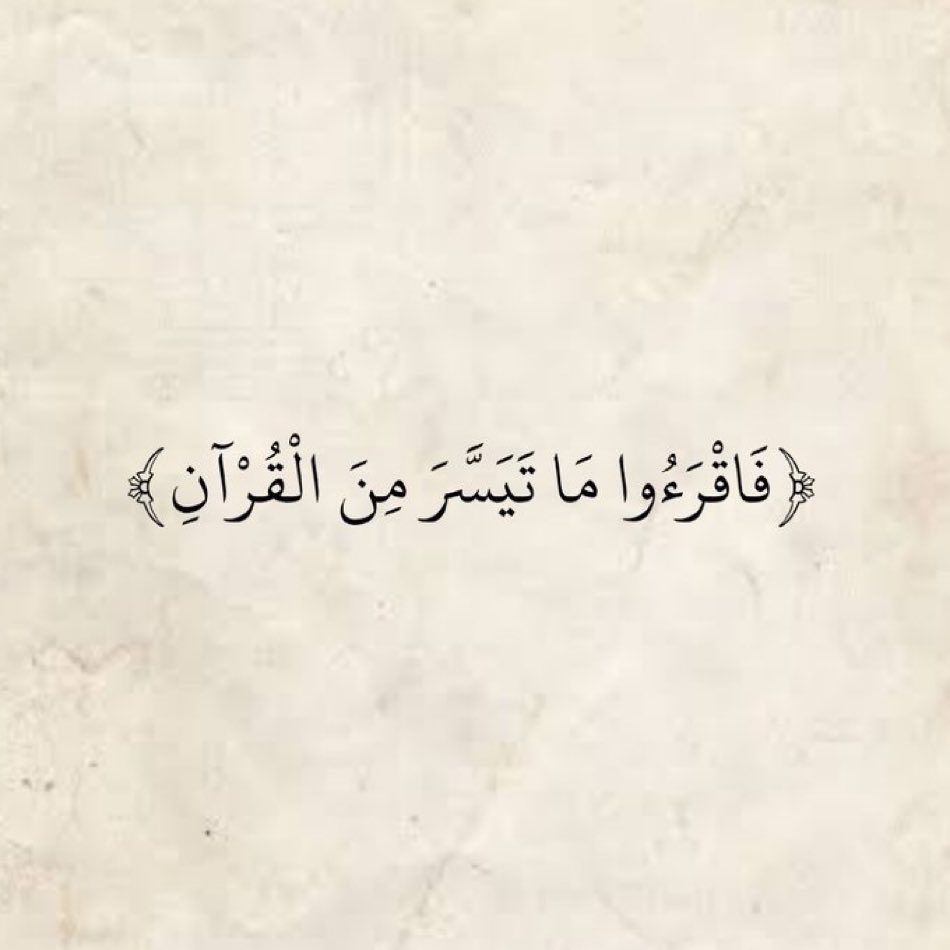 ﴿فَاقْرَءُوا مَا تَيَسَّرَ مِنَ الْقُرْآنِ﴾